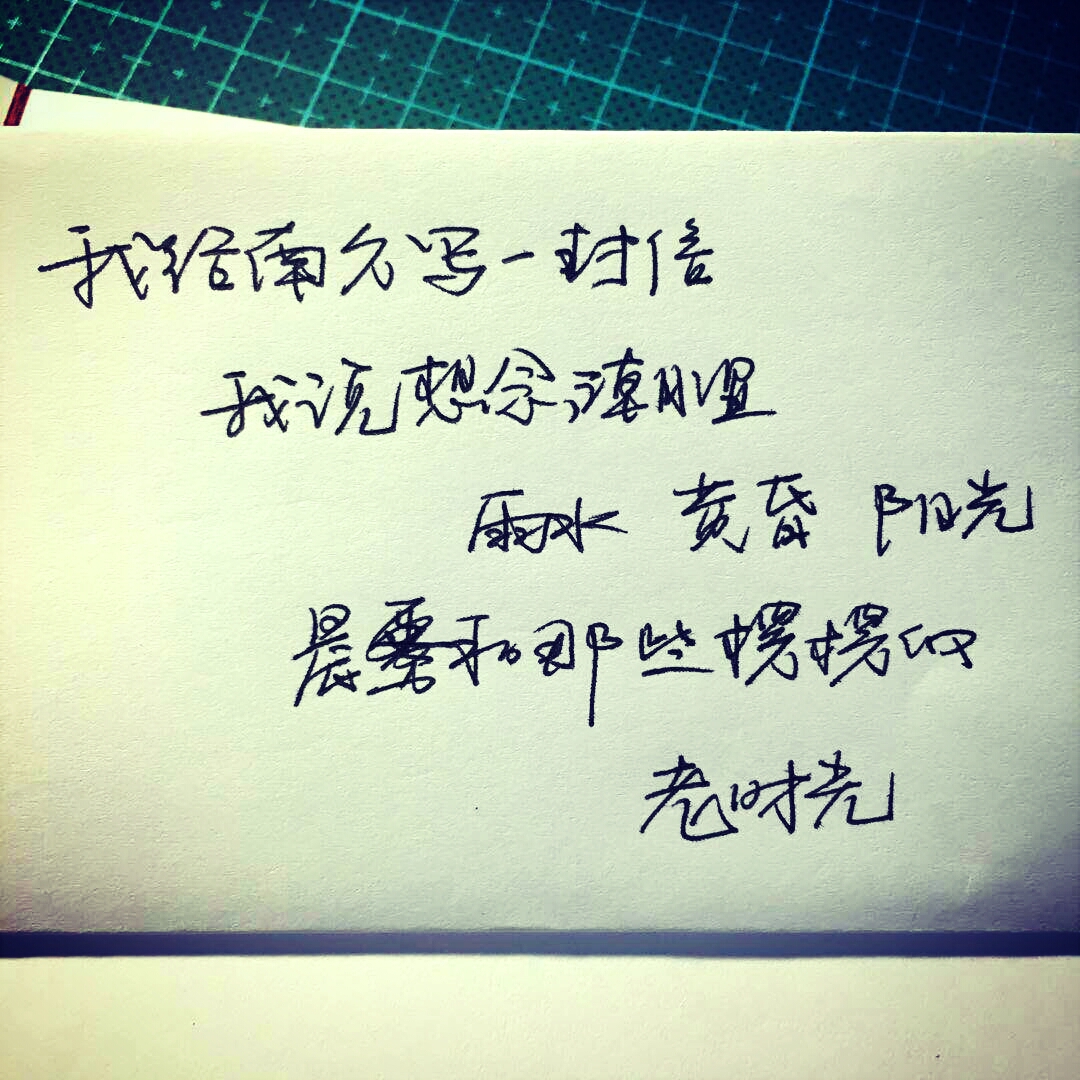 我给南写一封信
我说想念
雨水 黄昏 阳光
晨雾和那些楞楞的
老时光